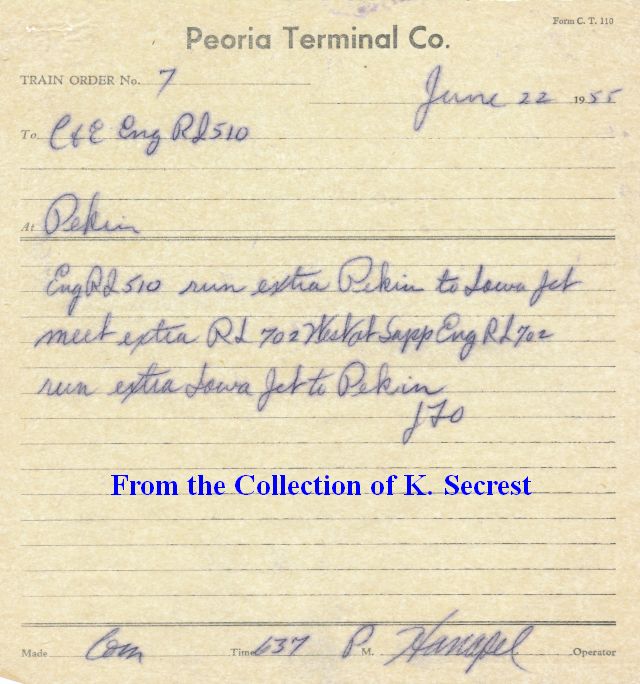 Form C. T. 110
Peoria Terminal Co.
TRAIN ORDER No. 7
June 22 1955
To C & E Eng RI 510
At Pekin
Eng RI 510 run extra Pekin to Iowa Jct
meet extra RI 702 West at Sapp Eng RI 702
run extra Iowa Jct to Pekin
From the Collection of K. Secrest
Made Com Time 637 P. M. Operator